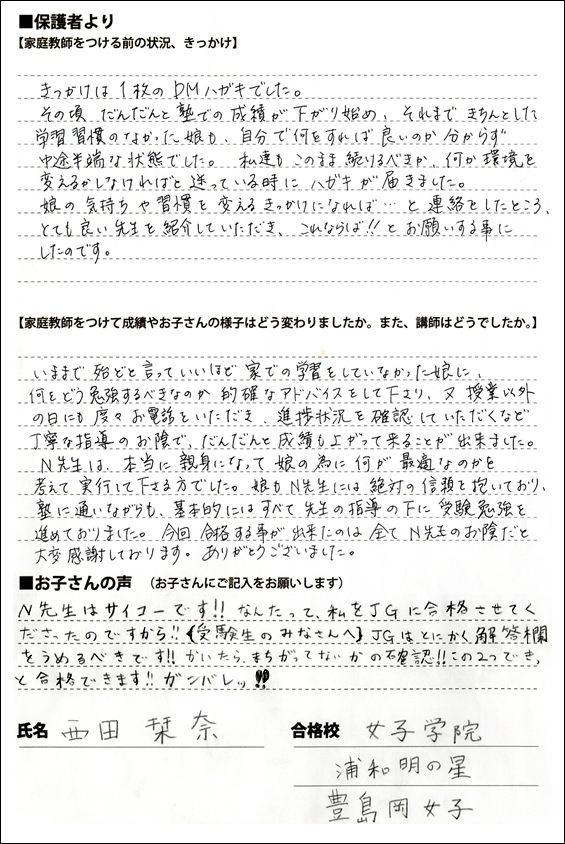 ■保護者より
【家庭教師をつける前の状況、きっかけ】
きっかけは1枚のDMハガキでした。
その頃 だんだんと塾での成績が下がり始め、それまできちんとした
学習習慣のなかった娘も、自分で何をすれば良いのか分からず
中途半端な状態でした。私達もこのまま続けるべきか、何か環境を
変えるかしなければと迷っている時に ハガキが届きました。
娘の気持ちや習慣を変えるきっかけになれば…と連絡をしたところ、
とても良い先生を紹介していただき、これならば!!とお願いする事に
したのです。
【家庭教師をつけて成績やお子さんの様子はどう変わりましたか。また、講師はどうでしたか。】
いままで 殆どと言っていいほど 家での学習をしていなかった娘に、
何をどう勉強するべきなのか 的確なアドバイスをして下さり、又 授業以外
の日にも 度々お電話をいただき、進捗状況を確認していただくなど
丁寧な指導のお陰で、だんだんと成績も上がって来ることが出来ました。
N先生は、本当に親身になって娘の為に何が最適なのかを
考えて実行して下さる方でした。娘もN先生には絶対の信頼を抱いており、
塾に通いながらも、基本的にはすべて先生の指導の下に受験勉強を
進めておりました。今回合格する事が出来たのは全てN先生のお陰だと
大変感謝しております。ありがとうございました。
■お子さんの声 (お子さんにご記入をお願いします)
N先生はサイコーです!! なんたって、私をJGに合格させてく
ださったのですから!!《受験生のみなさんへ》JGはとにかく解答欄
をうめるべきです!! かいたら、まちがってないかの確認!!この2つでき、
と合格できます!! ガンバレッ!!
氏名 西田 栞奈
合格校 女子学院
浦和明の星
豊島岡女子